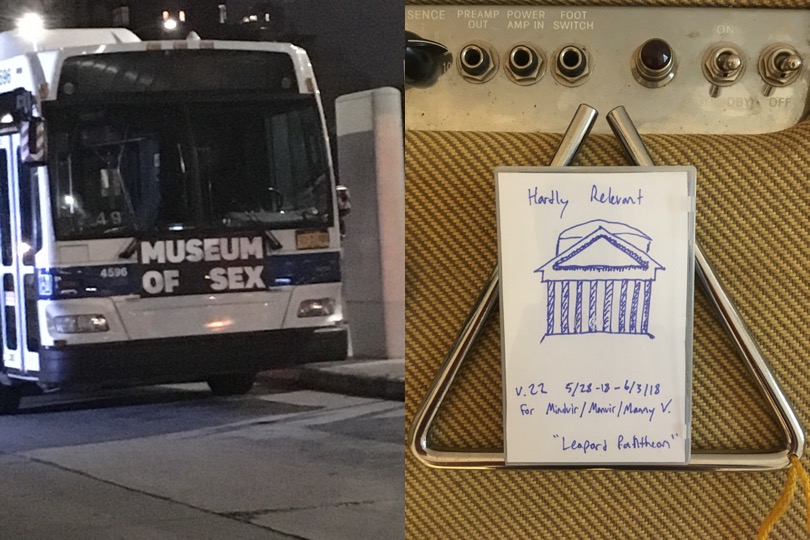 MUSEUM
OF SEX
4596
49
SENCE
PREAMP
OUT
POWER
AMP IN
FOOT
SWITCH
ON
OFF
Hardly Relevant
v.22 5/28-18-6/3/18
For Mindvir/Manvir/Manny V.
"Leopard Pantheon"